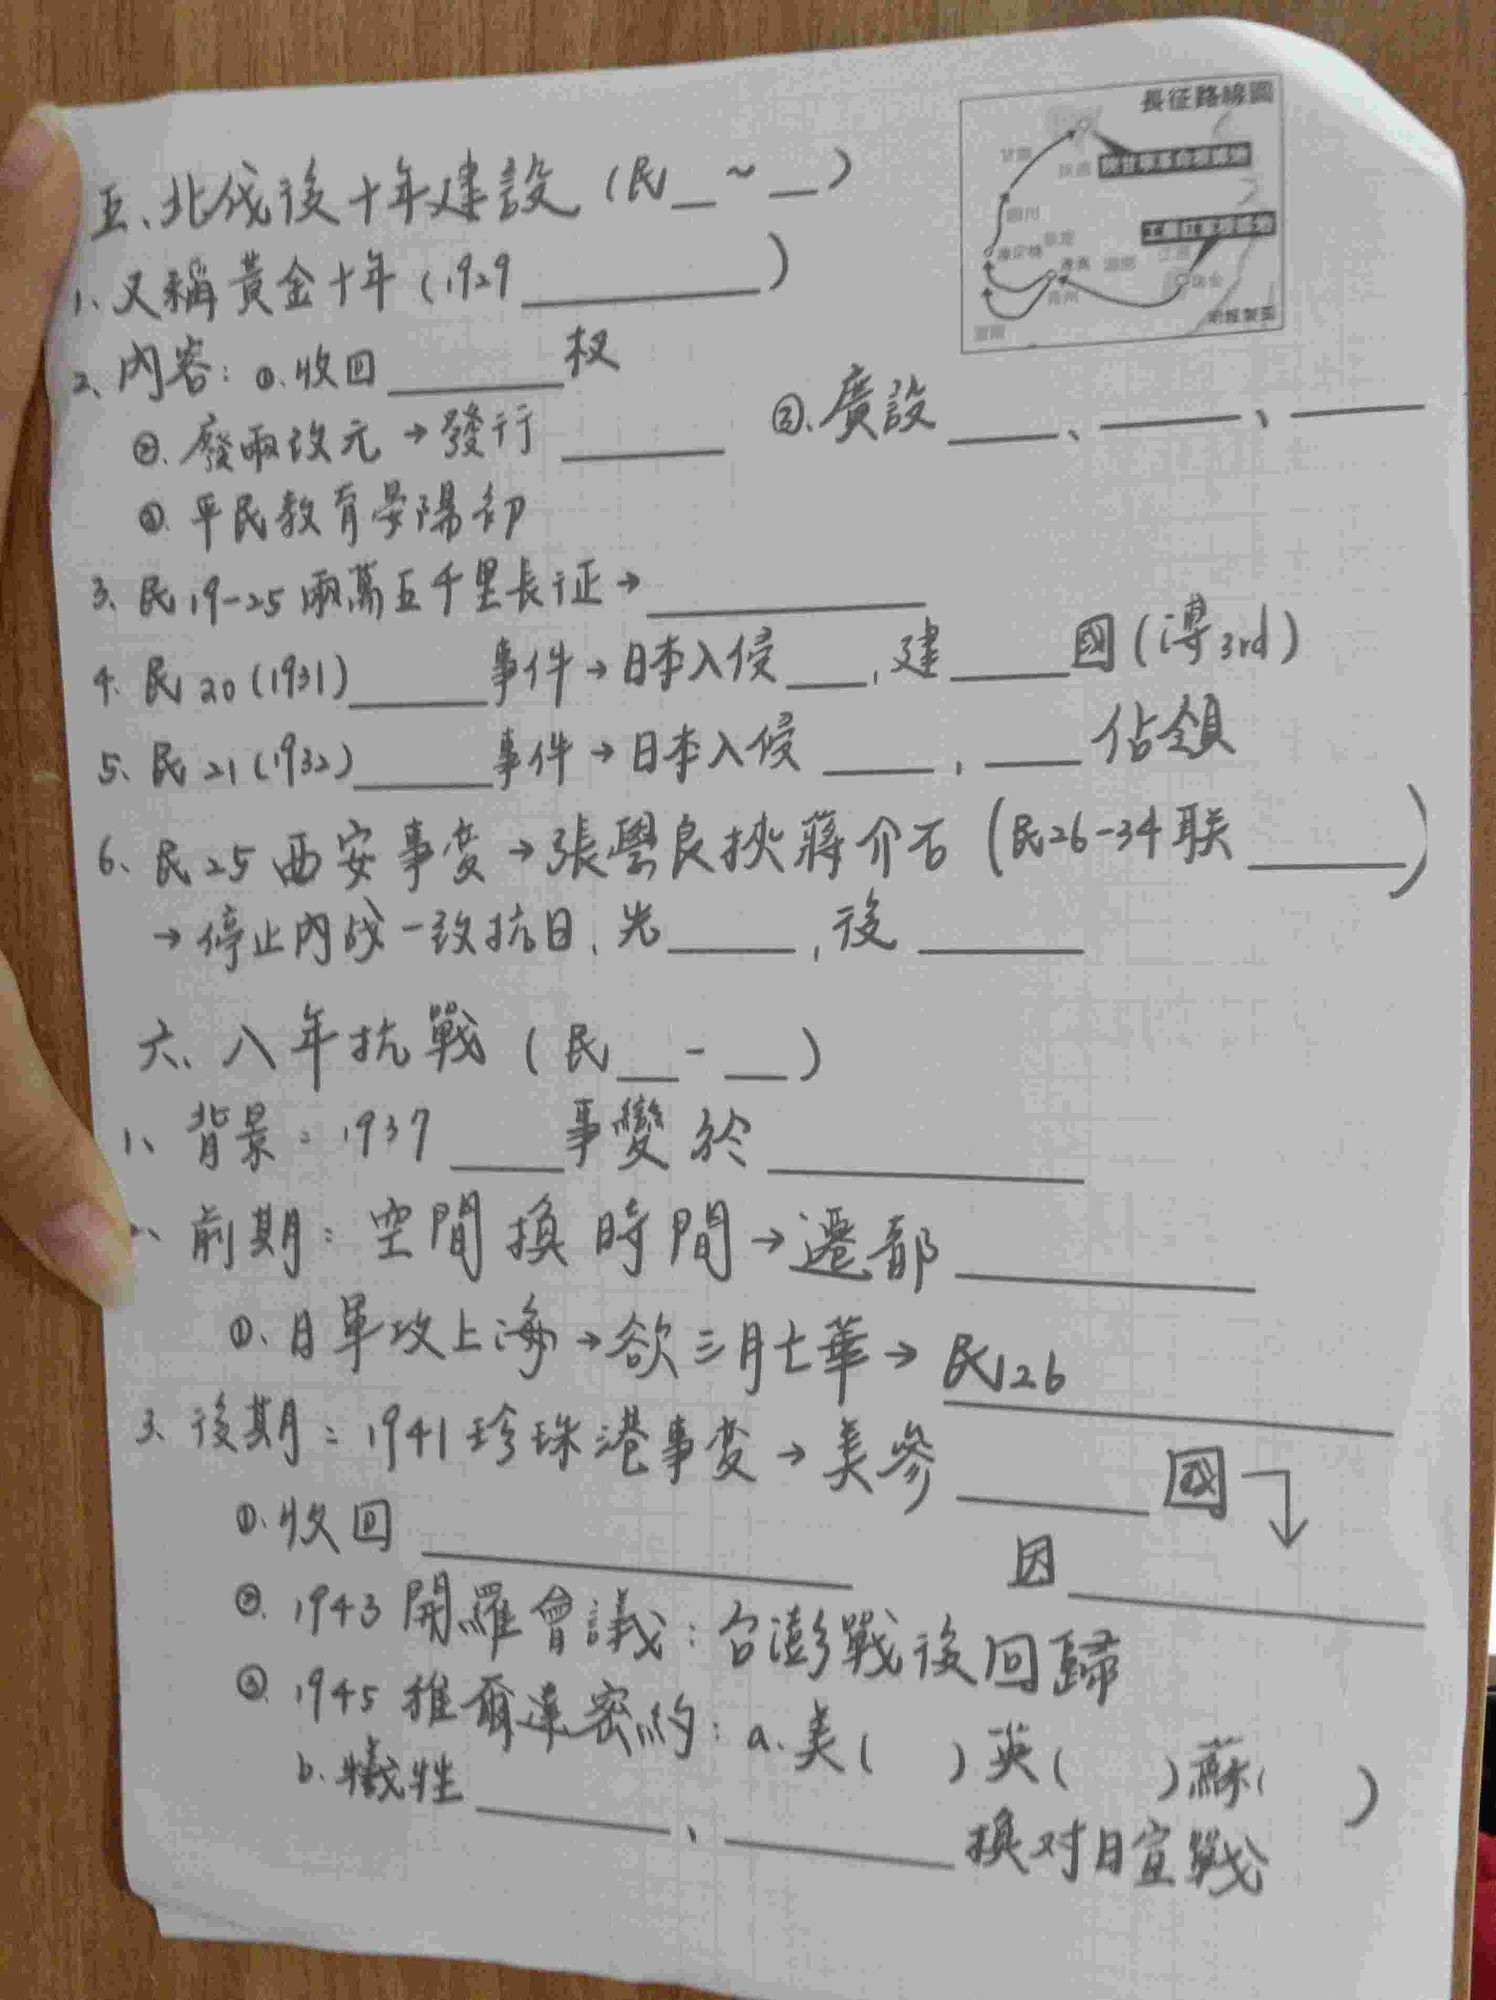 長征路線圖
五、北伐後十年建設（民__~__）
1、又稱黃金十年（1929________）
2、內容：①.收回______权
②.廢兩改元→發行______
③.廣設____、____、____
④.平民教育晏陽初
3、民19-25兩萬五千里長征→________
4、民20(1931)_____事件→日本入侵___,建____國(溥3rd)
5、民21(1932)_____事件→日本入侵____,____佔領
6、民25西安事变→張學良挾蔣介石（民26-34联_____）
→停止內战一致抗日,先____,後_____
六、八年抗戰（民__-__）
1、背景：1937____事變於________
、前期：空間換時間→遷都________
①.日軍攻上海→欲三月亡華→民26________
3、後期：1941珍珠港事变→美參______國
因________
①.收回________
②.1943開羅會議：台澎戰後回歸
③.1945雅爾達密約：a.美(　)英(　)蘇(　)
b.犧牲______、______換对日宣戰